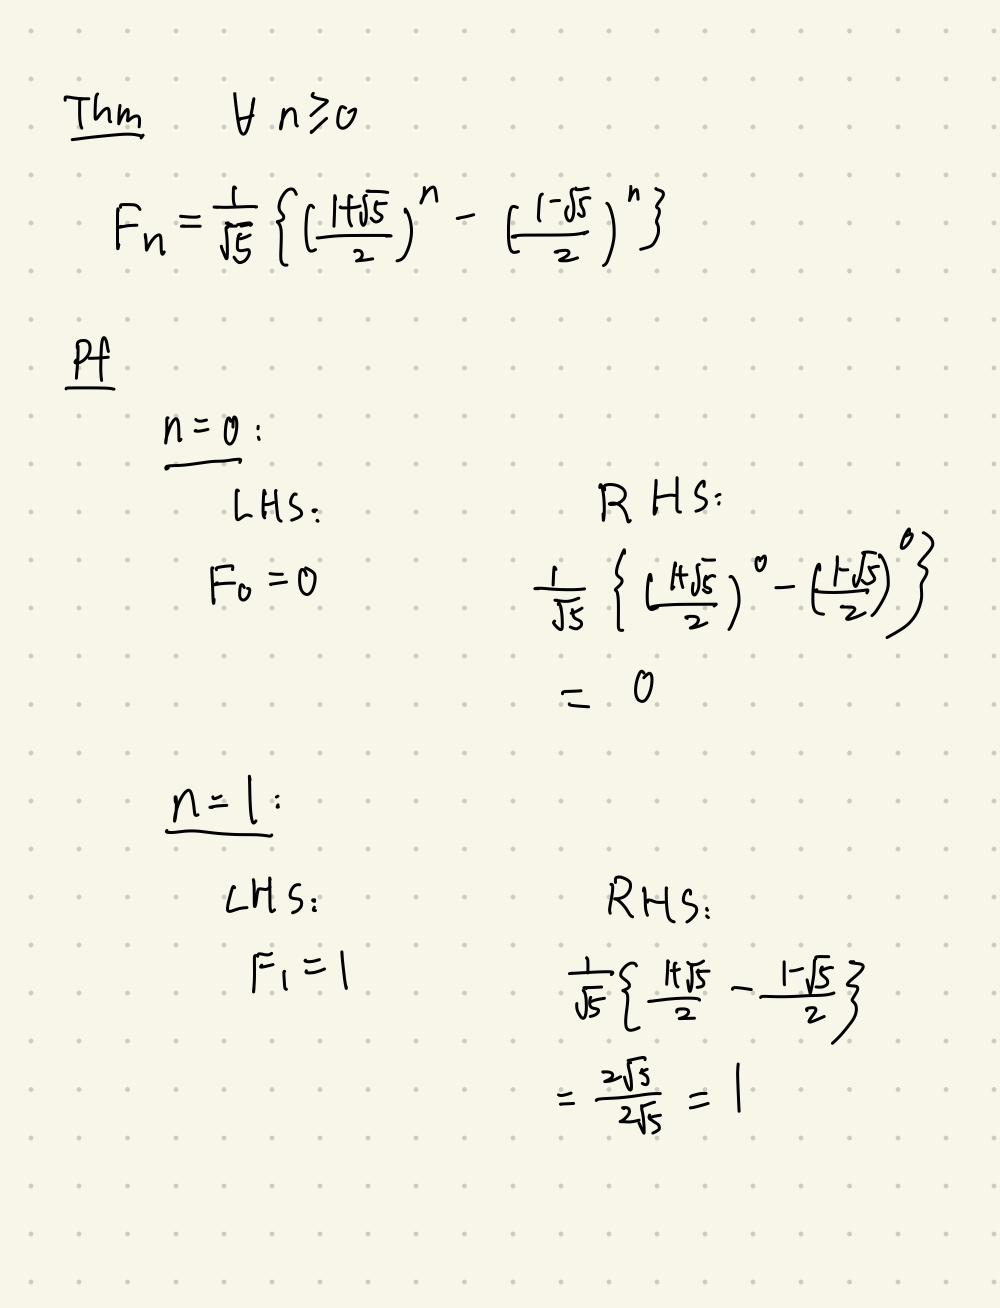 Thm ∀ n ≥ 0
F_n = 1/√5 { ((1+√5)/2)^n - ((1-√5)/2)^n }
Pf
n = 0 :
LHS: RHS:
F_0 = 0 1/√5 { ((1+√5)/2)^0 - ((1-√5)/2)^0 }
= 0
n = 1 :
LHS: RHS:
F_1 = 1 1/√5 { (1+√5)/2 - (1-√5)/2 }
= 2√5/2√5 = 1